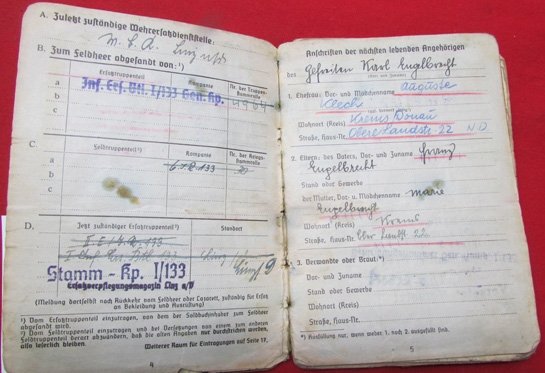 A. Zuletzt zuständige Wehrersatzdienststelle:
W. B. A. Linz
B. Zum Feldheer abgesandt von:¹)
Ersatztruppenteil
Kompanie
Nr. der Truppen-
stammrolle
a
Inf. Ers. Btl. I/133 Gen. Kp.
b
c
C.
Feldtruppenteil²)
Kompanie
Nr. der Kriegs-
stammrolle
a
b
c
D.
Jetzt zuständiger Ersatztruppenteil²)
Standort
Linz
Stamm - Kp. I/133
Ersatzverpflegungsmagazin Linz a/D
(Meldung dortselbst nach Rückkehr vom Feldheer oder Lazarett, zuständig für Ersatz
an Bekleidung und Ausrüstung)
¹) Vom Ersatztruppenteil einzutragen, von dem der Soldbuchinhaber zum Feldheer
abgesandt wird.
²) Vom Feldtruppenteil einzutragen und bei Versetzungen von einem zum anderen
Feldtruppenteil derart abzuändern, daß die alten Angaben nur durchstrichen werden,
also leserlich bleiben.
Weiterer Raum für Eintragungen auf Seite 17.
4
Anschriften der nächsten lebenden Angehörigen
des Gefreiten Karl Englbrecht
(Vor- und Zuname)
1. Ehefrau: Vor- und Mädchenname Auguste
Wohnort (Kreis) Krems Donau
Straße, Haus-Nr. Obere Landstr. 22 N.D.
2. Eltern: des Vaters, Vor- und Zuname Franz
Engelbrecht
Stand oder Gewerbe
der Mutter, Vor- u. Mädchenname Marie
Wohnort (Kreis) Krems
Straße, Haus-Nr. 22
3. Verwandte oder Braut:*)
Vor- und Zuname
Stand oder Gewerbe
Wohnort (Kreis)
Straße, Haus-Nr.
*) Ausfüllung nur, wenn weder 1. noch 2. ausgefüllt sind.
5